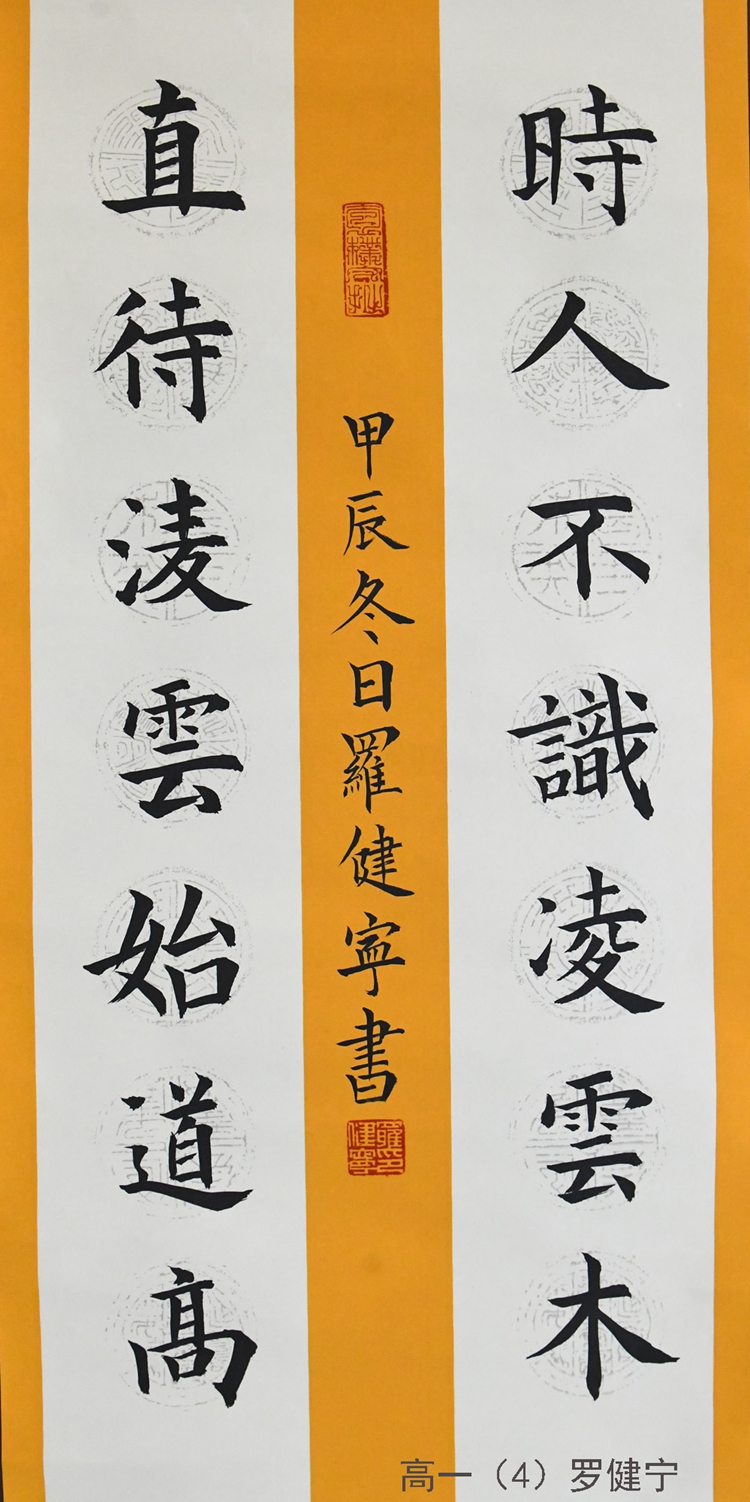 時人不識凌雲木
直待淩雲始道高
甲辰冬日羅健寧書
羅健寧印
高一（4）罗健宁